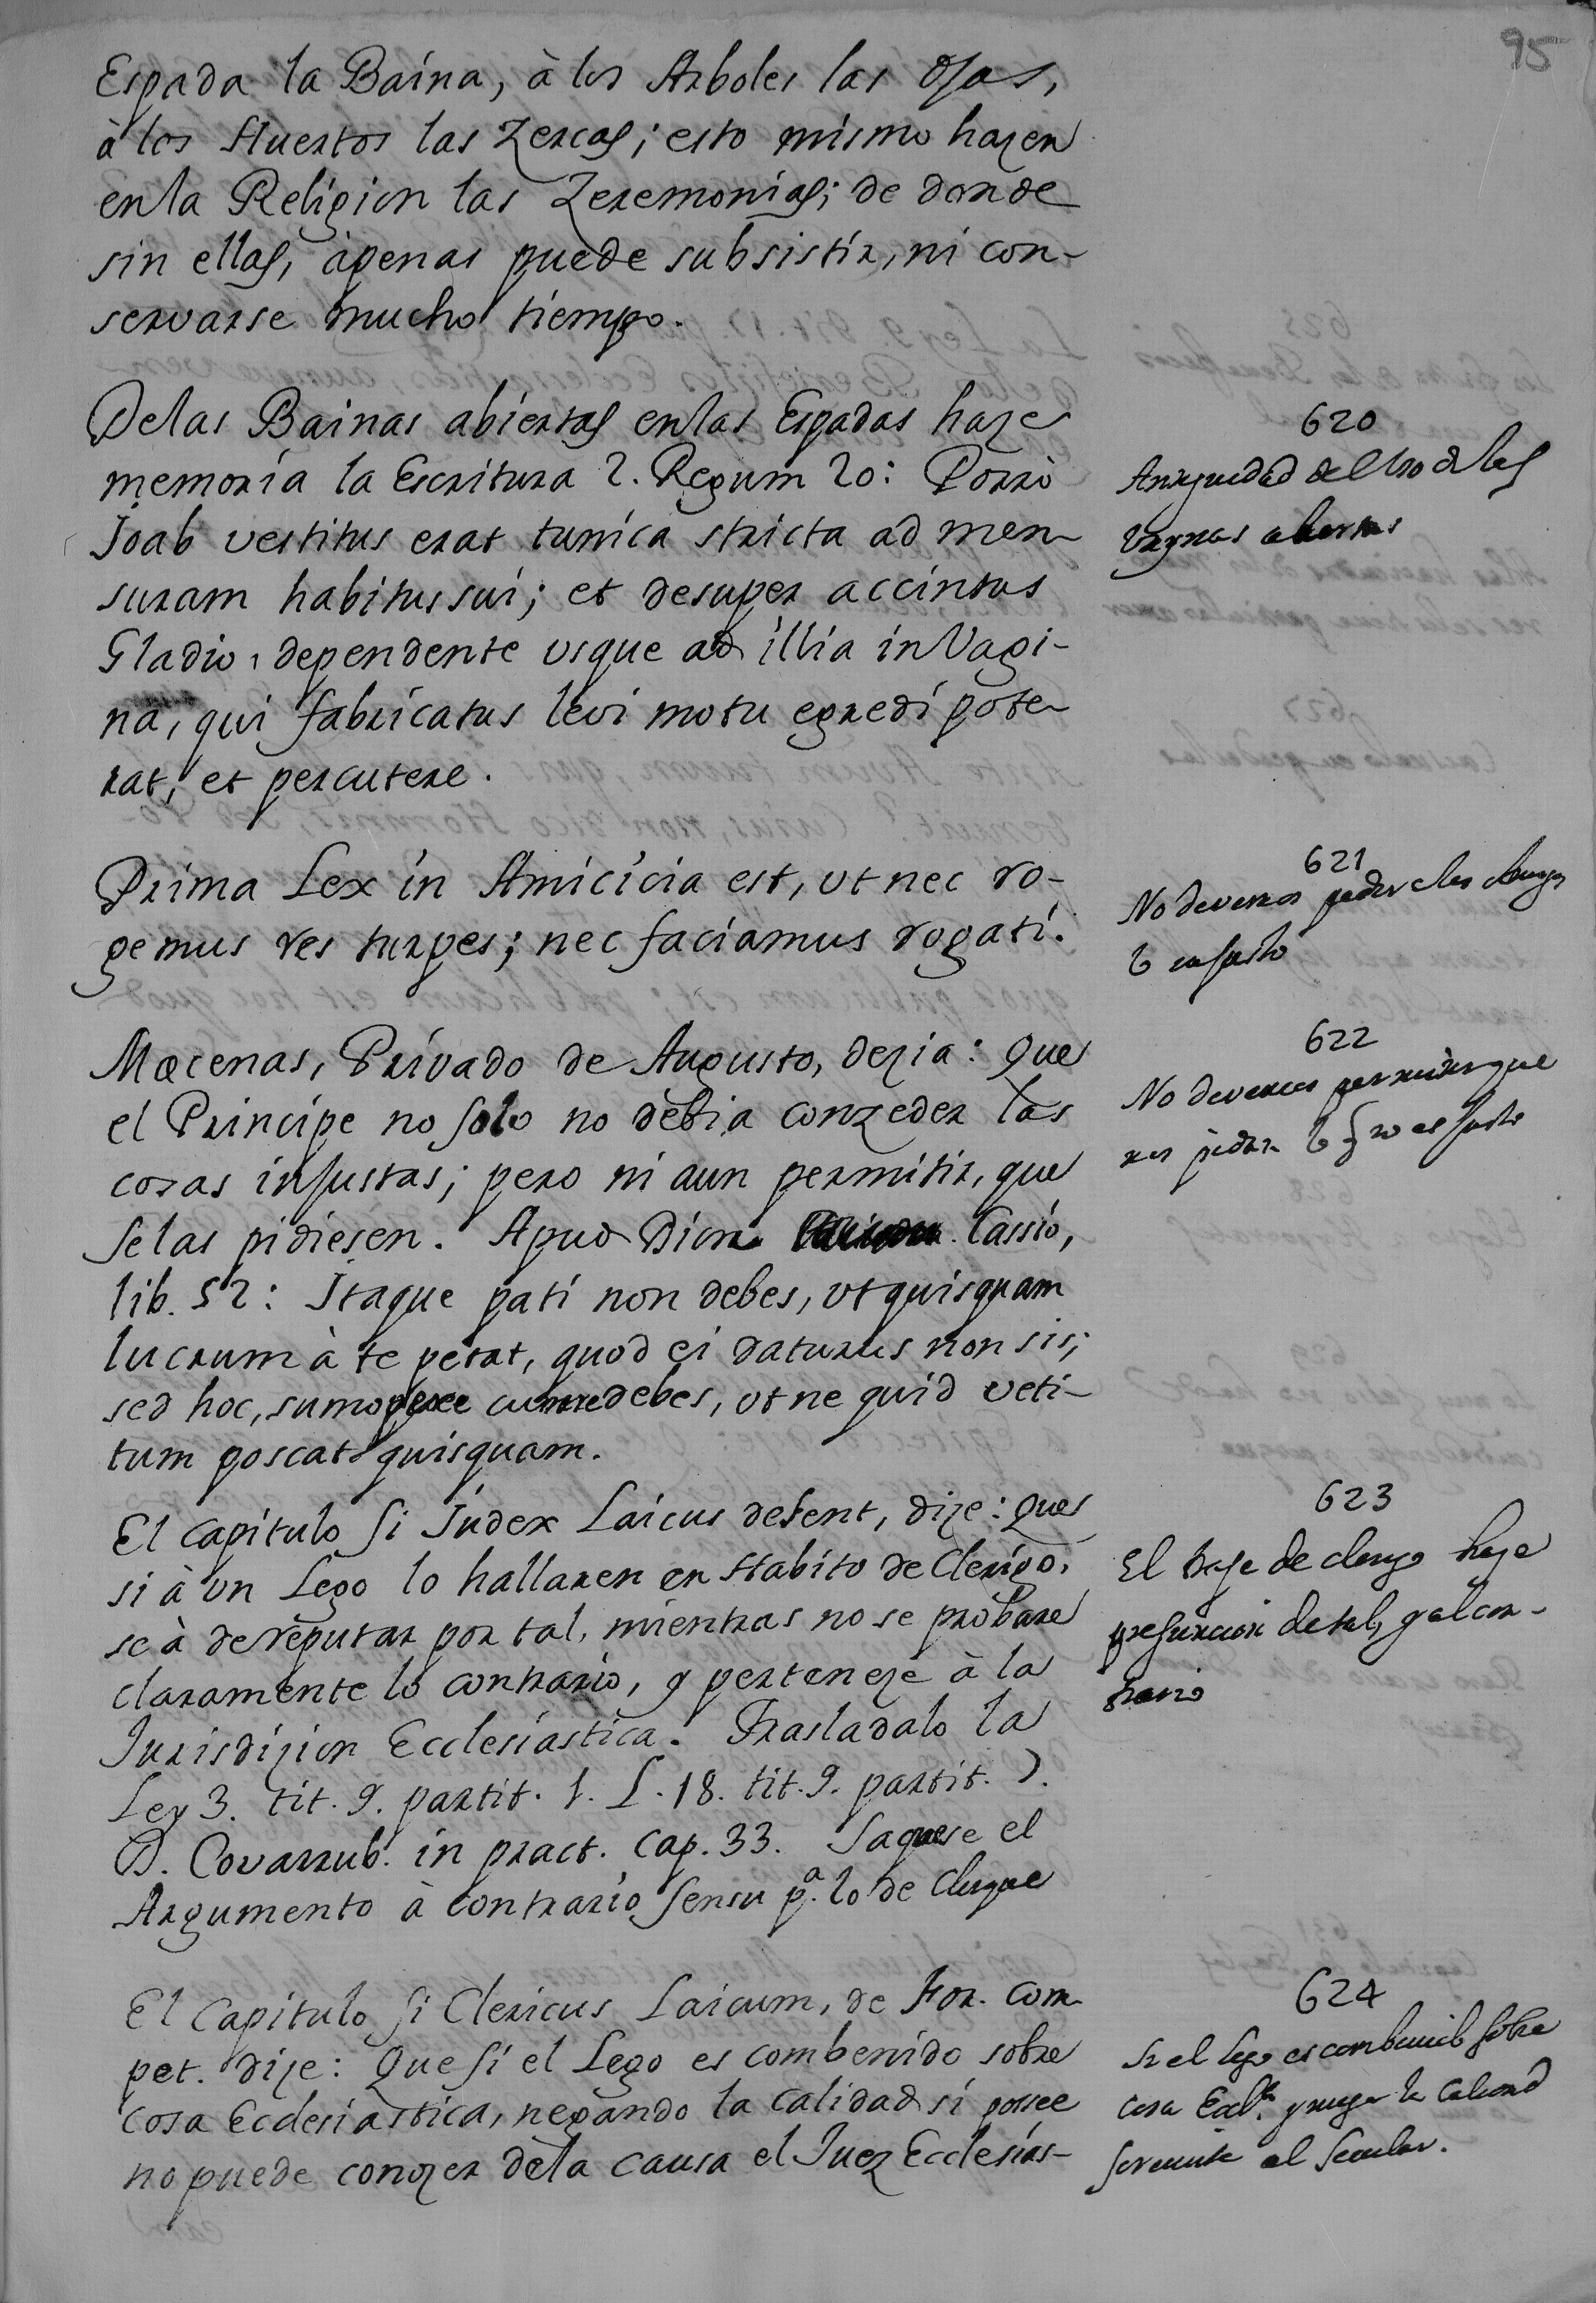 95
Espada la Baina, à los Arboles las Ojas,
à los Huertos las Zercas; esto mismo hazen
en la Religion las Zeremonias; de donde
sin ellas, àpenas puede subsistir, ni con-
servarse mucho tiempo.
De las Bainas abiertas en las Espadas haze
memoria la Escritura 2. Regum 20: Porrò
Joab vestitus erat tunica stricta ad men-
suram habitus sui; et desuper accintus
Gladio, dependente usque ad illia in Vagi-
na, qui fabricatus levi motu egredi pote-
rat, et percutere.
620
Antiguedad del uso de las
vaynas abiertas
Prima Lex in Amicicia est, ut nec ro-
gemus res turpes; nec faciamus rogati.
621
No devemos pedir
lo injusto
Mæcenas, Privado de Augusto, dezia: Que
el Principe no solo no debia conzeder las
cosas injustas; pero ni aun permitir, que
se las pidiesen. Apud Dion. Cassio,
lib. 52: Itaque pati non debes, ut quisquam
lucrum à te petat, quod ei daturus non sis;
sed hoc, sumopere debes, ut ne quid veti-
tum poscat quisquam.
622
No devemos permitir que
nos pidan lo q no es justo
El Capitulo Si Judex Laicus debent, dize: Que
si à un Lego lo hallaren en Habito de Clerigo,
se à de reputar por tal, mientras no se probare
claramente lo contrario, y perteneze à la
Jurisdizion Ecclesiastica. Trasladalo la
Ley 3. tit. 9. partit. 1. L. 18. tit. 9. partit. 7.
D. Covarrub. in pract. cap. 33. Saquese el
Argumento à contrario sensu pa. lo de Clerigo
623
El traje de clerigo haze
presuncion de tal, y al con-
trario
El Capitulo Si Clericus Laicum, de For. Com-
pet. dize: Que si el Lego es combenido sobre
cosa Ecclesiastica, negando la calidad si posee
no puede conozer de la causa el Juez Ecclesias-
624
Si el lego es combenido sobre
cosa Eccl.ca y niega la calidad
se remite al Secular.